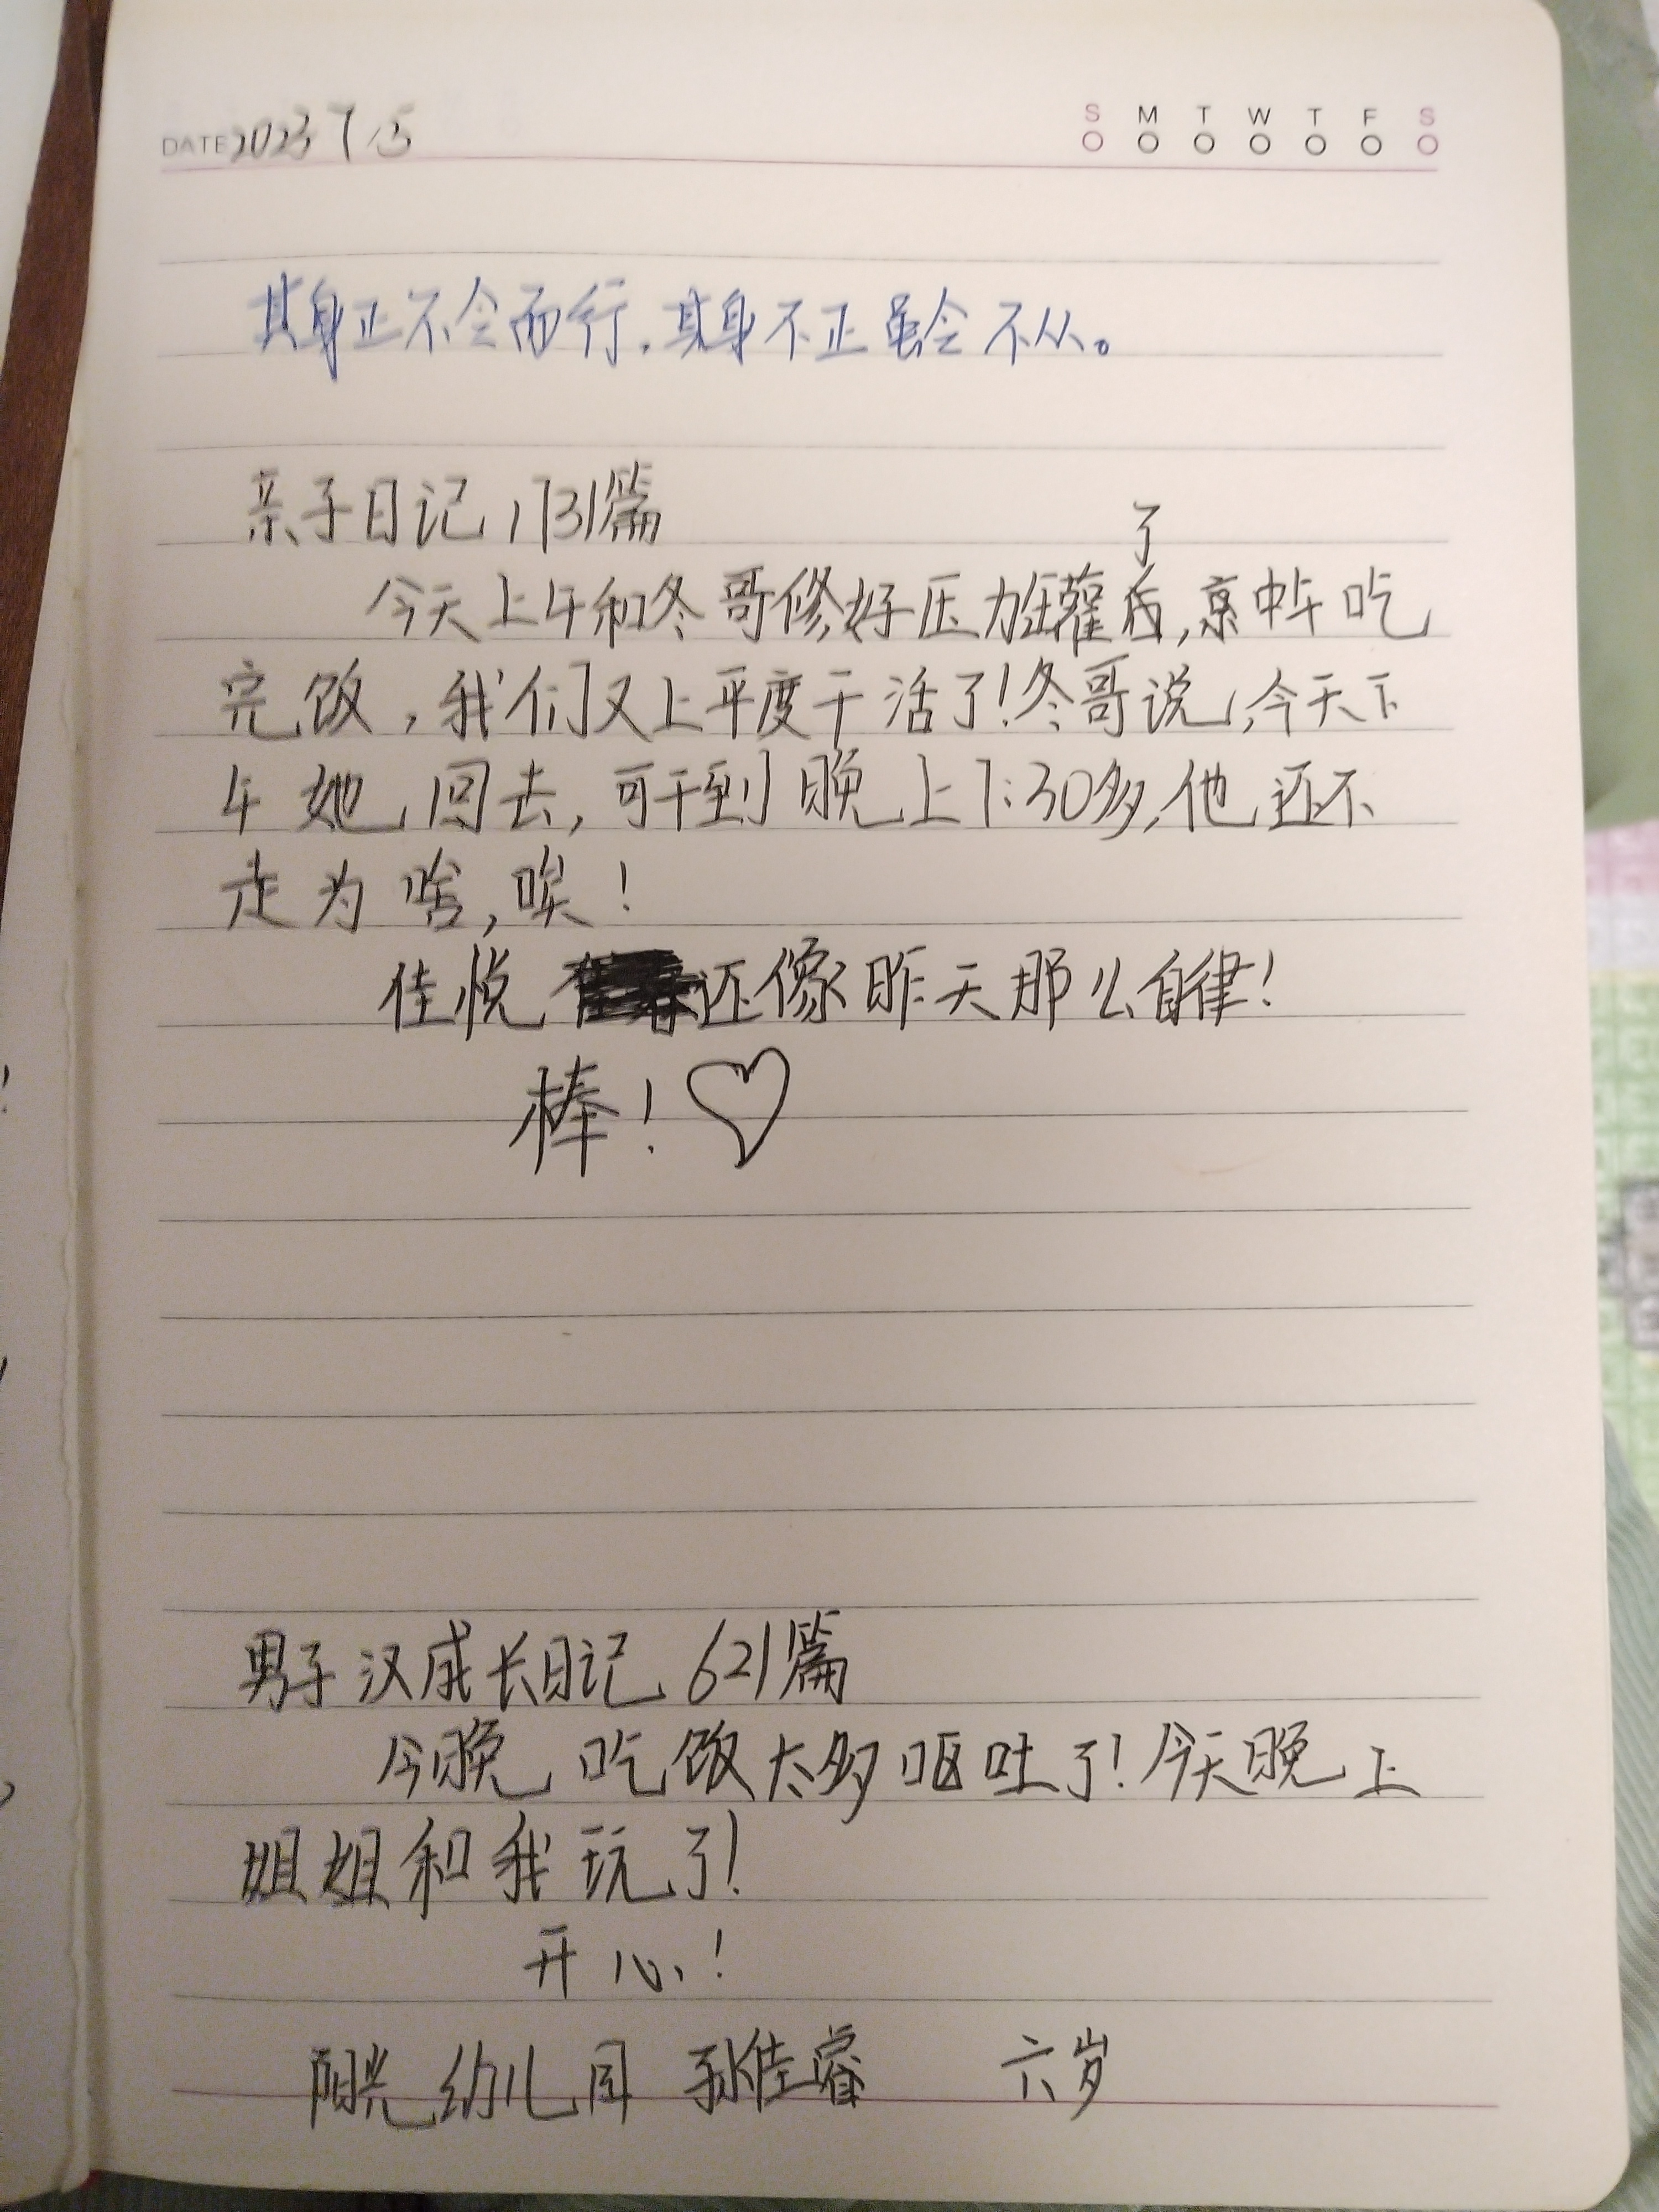 S M T W T F S
DATE 2023 7 15
其身正不令而行.其身不正虽令不从。
亲子日记1731篇
了
今天上午和冬哥修好压力罐后,京中午吃
完饭,我们又上平度干活了!冬哥说,今天下
午她回去,可干到晚上7:30多,他还不
走为啥,唉!
佳悦还像昨天那么自律!
棒!♡
男子汉成长日记 621篇
今晚吃饭太多呕吐了!今天晚上
姐姐和我玩了!
开心!
阳光幼儿园 孙佳睿 六岁